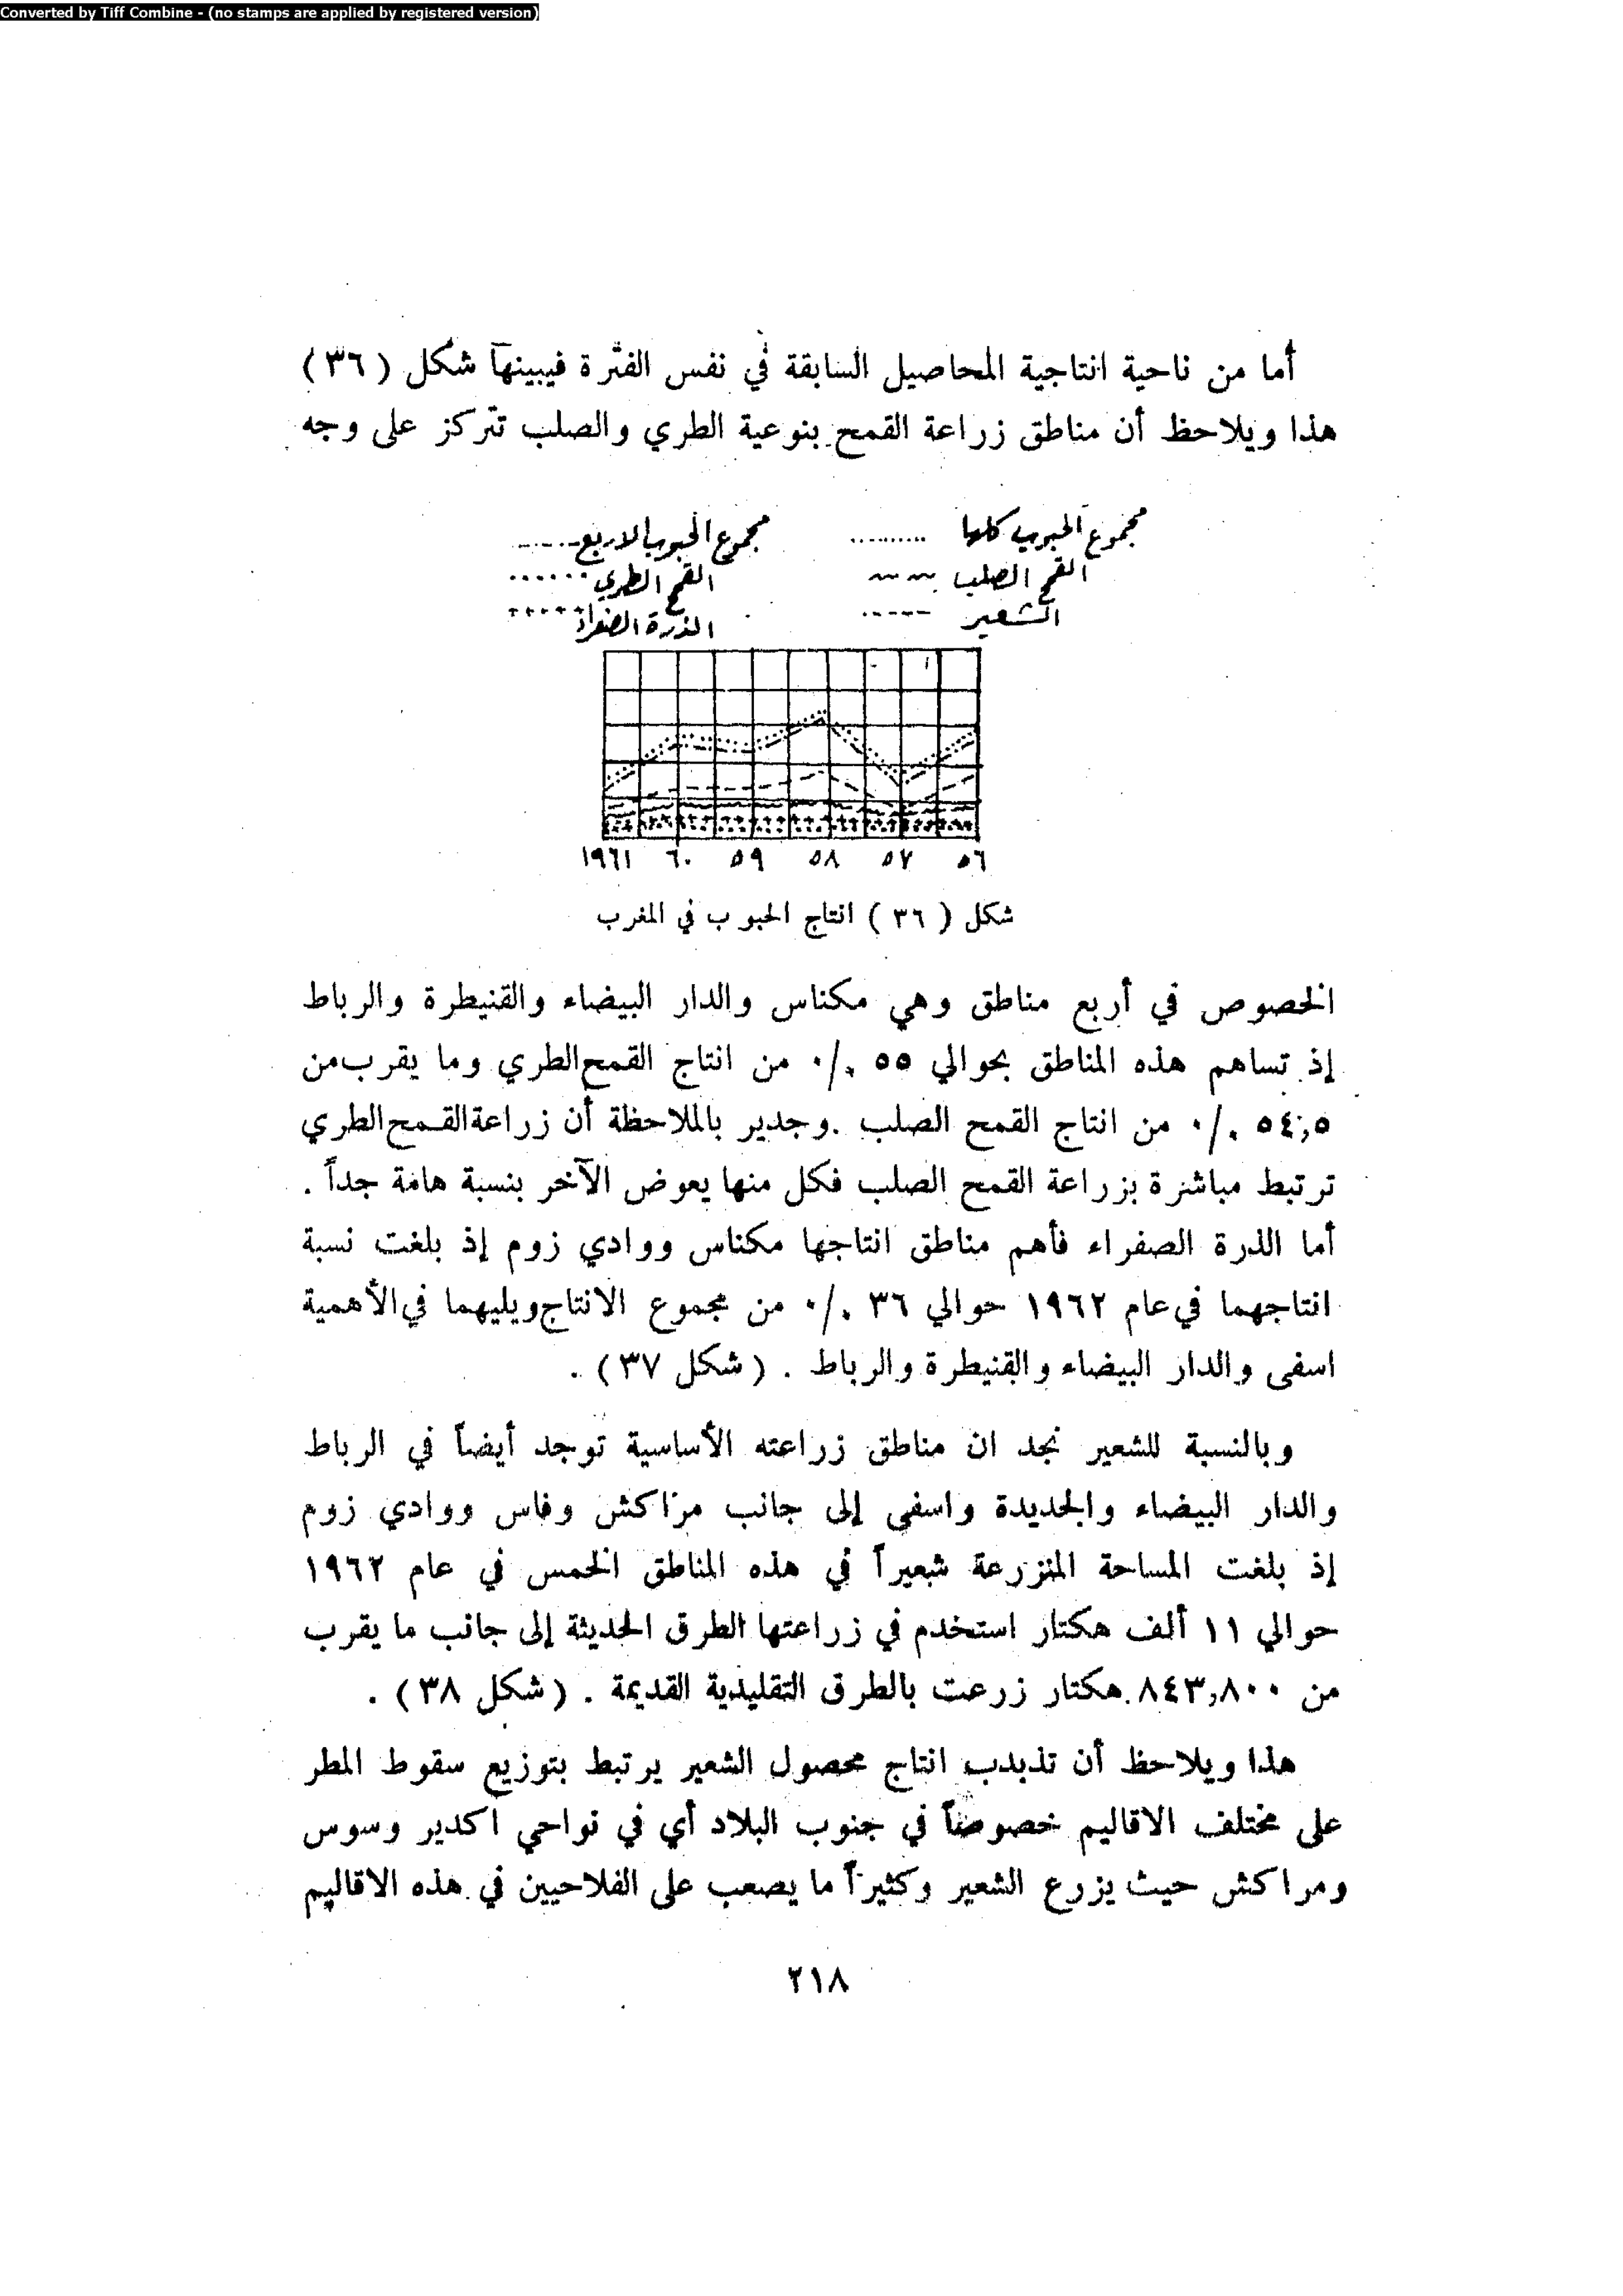 Converted by Tiff Combine - (no stamps are applied by registered version)
أما من ناحية انتاجية المحاصيل السابقة في نفس الفترة فيبينها شكل ( ٣٦ )
هذا ويلاحظ أن مناطق زراعة القمح بنوعية الطري والصلب تتركز على وجه
مجموع الحبوب كلها
مجموع الحبوب الاربع
القمح الصلب
القمح الطري
الشعير
الذرة الصفراء
١٩٦١ ٦٠ ٥٩ ٥٨ ٥٧ ٥٦
شكل ( ٣٦ ) انتاج الحبوب في المغرب
الخصوص في أربع مناطق وهي مكناس والدار البيضاء والقنيطرة والرباط
إذ تساهم هذه المناطق بحوالي ٥٥ ٠/٠ من انتاج القمح الطري وما يقرب من
٥٤,٥ ٠/٠ من انتاج القمح الصلب . وجدير بالملاحظة أن زراعة القمح الطري
ترتبط مباشرة بزراعة القمح الصلب فكل منها يعوض الآخر بنسبة هامة جداً .
أما الذرة الصفراء فأهم مناطق انتاجها مكناس ووادي زوم إذ بلغت نسبة
انتاجهما في عام ١٩٦٢ حوالي ٣٦ ٠/٠ من مجموع الانتاج ويليهما في الأهمية
اسفى والدار البيضاء والقنيطرة والرباط . ( شكل ٣٧ ) .
وبالنسبة للشعير نجد ان مناطق زراعته الأساسية توجد أيضاً في الرباط
والدار البيضاء والجديدة واسفى إلى جانب مراكش وفاس ووادي زوم
إذ بلغت المساحة المنزرعة شعيراً في هذه المناطق الخمس في عام ١٩٦٢
حوالي ١١ ألف هكتار استخدم في زراعتها الطرق الحديثة إلى جانب ما يقرب
من ٨٤٣,٨٠٠ هكتار زرعت بالطرق التقليدية القديمة . ( شكل ٣٨ ) .
هذا ويلاحظ أن تذبدب انتاج محصول الشعير يرتبط بتوزيع سقوط المطر
على مختلف الاقاليم خصوصاً في جنوب البلاد أي في نواحي اكدير وسوس
ومراكش حيث يزرع الشعير وكثيراً ما يصعب على الفلاحيين في هذه الاقاليم
٢١٨